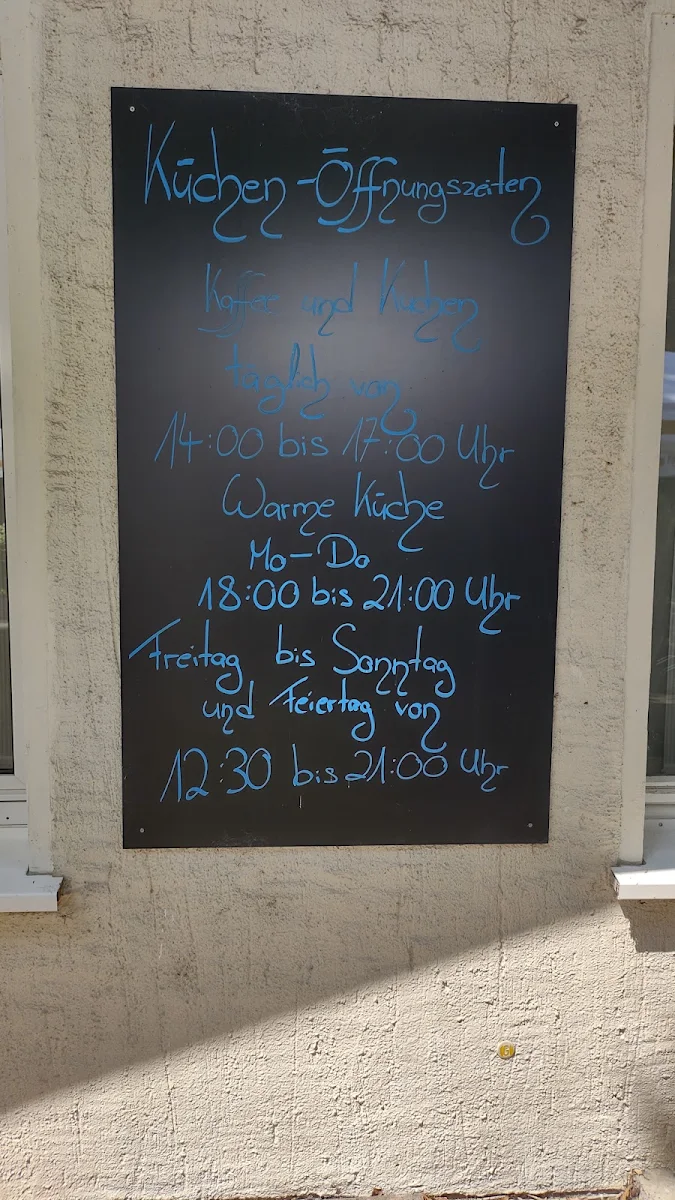 Küchen-Öffnungszeiten
Kaffee und Kuchen
täglich von
14:00 bis 17:00 Uhr
Warme Küche
Mo-Do
18:00 bis 21:00 Uhr
Freitag bis Sonntag
und Feiertag von
12:30 bis 21:00 Uhr